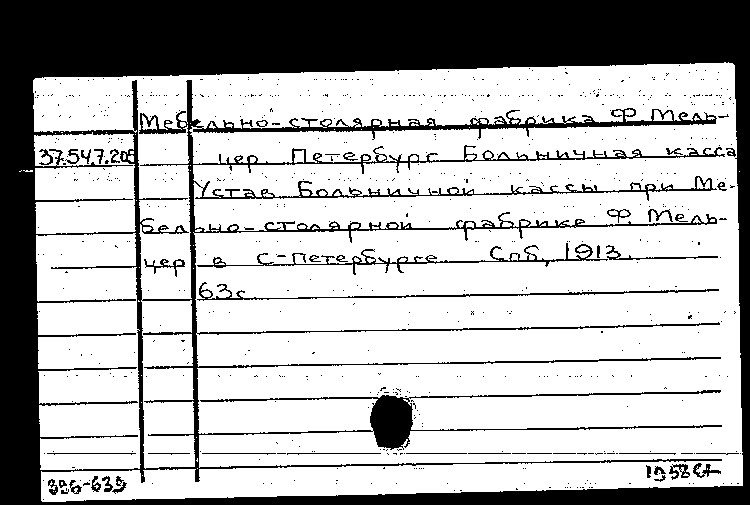 Мебельно-столярная фабрика Ф. Мель-
37.54.7.205 цер. Петербург Больничная касса
Устав Больничной кассы при Ме-
бельно-столярной фабрике Ф. Мель-
цер в С-Петербурге Спб, 1913.
63с
396-639